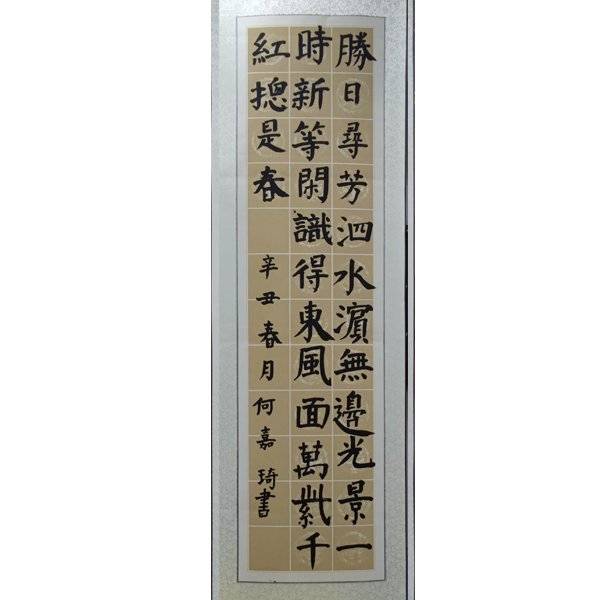 勝日尋芳泗水濱無邊光景一
時新等閑識得東風面萬紫千
紅摠是春
辛丑春月何嘉琦書